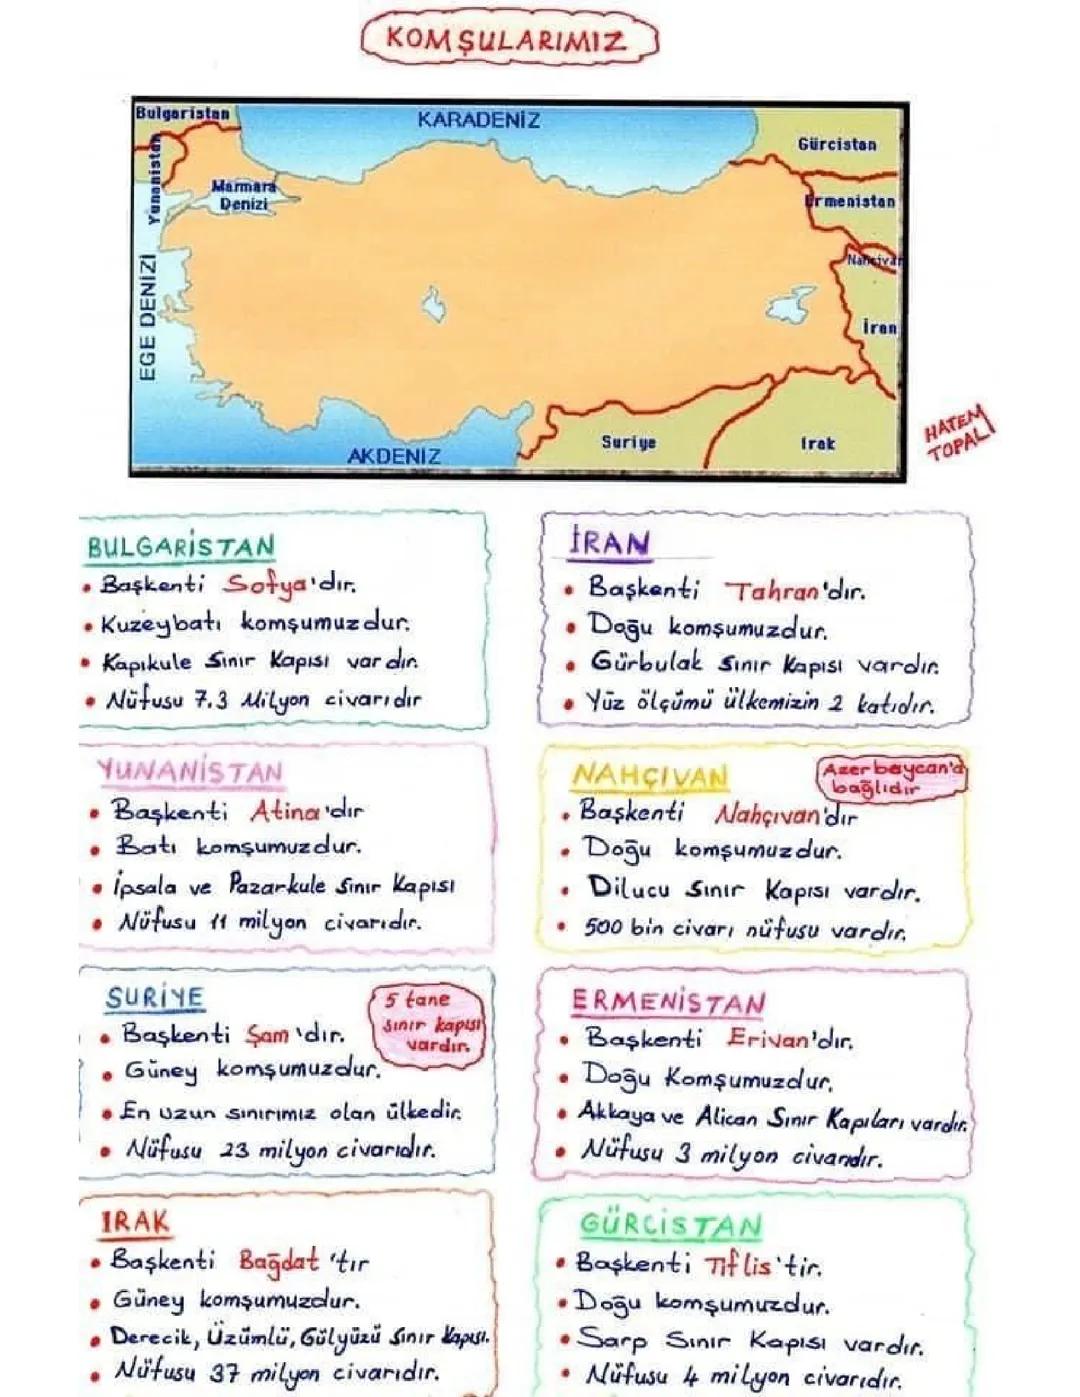 KOMŞULARIMIZ
Bulgaristan
KARADENİZ
Gürcistan
Yunanistan
Marmara
Denizi
Ermenistan
Nahçıvan
EGE DENİZİ
İran
Suriye
Irak
AKDENİZ
HATEM
TOPAL
BULGARİSTAN
• Başkenti Sofya'dır.
• Kuzeybatı komşumuzdur.
• Kapıkule Sınır Kapısı vardır.
• Nüfusu 7.3 Milyon civarıdır
İRAN
• Başkenti Tahran'dır.
• Doğu komşumuzdur.
• Gürbulak Sınır Kapısı vardır.
• Yüz ölçümü ülkemizin 2 katıdır.
YUNANİSTAN
• Başkenti Atina'dır
• Batı komşumuzdur.
• İpsala ve Pazarkule Sınır Kapısı
• Nüfusu 11 milyon civarıdır.
NAHÇIVAN
Azerbaycan'a
bağlıdır
• Başkenti Nahçıvan'dır
• Doğu komşumuzdur.
• Dilucu Sınır Kapısı vardır.
• 500 bin civarı nüfusu vardır.
SURİYE
5 tane
sınır kapısı
vardır.
• Başkenti Şam'dır.
• Güney komşumuzdur.
• En uzun sınırımız olan ülkedir.
• Nüfusu 23 milyon civarıdır.
ERMENİSTAN
• Başkenti Erivan'dır.
• Doğu Komşumuzdur.
• Akkaya ve Alican Sınır Kapıları vardır.
• Nüfusu 3 milyon civarıdır.
IRAK
• Başkenti Bağdat'tır
• Güney komşumuzdur.
• Derecik, Üzümlü, Gülyüzü Sınır Kapısı.
• Nüfusu 37 milyon civarıdır.
GÜRCİSTAN
• Başkenti Tiflis'tir.
• Doğu komşumuzdur.
• Sarp Sınır Kapısı vardır.
• Nüfusu 4 milyon civarıdır.